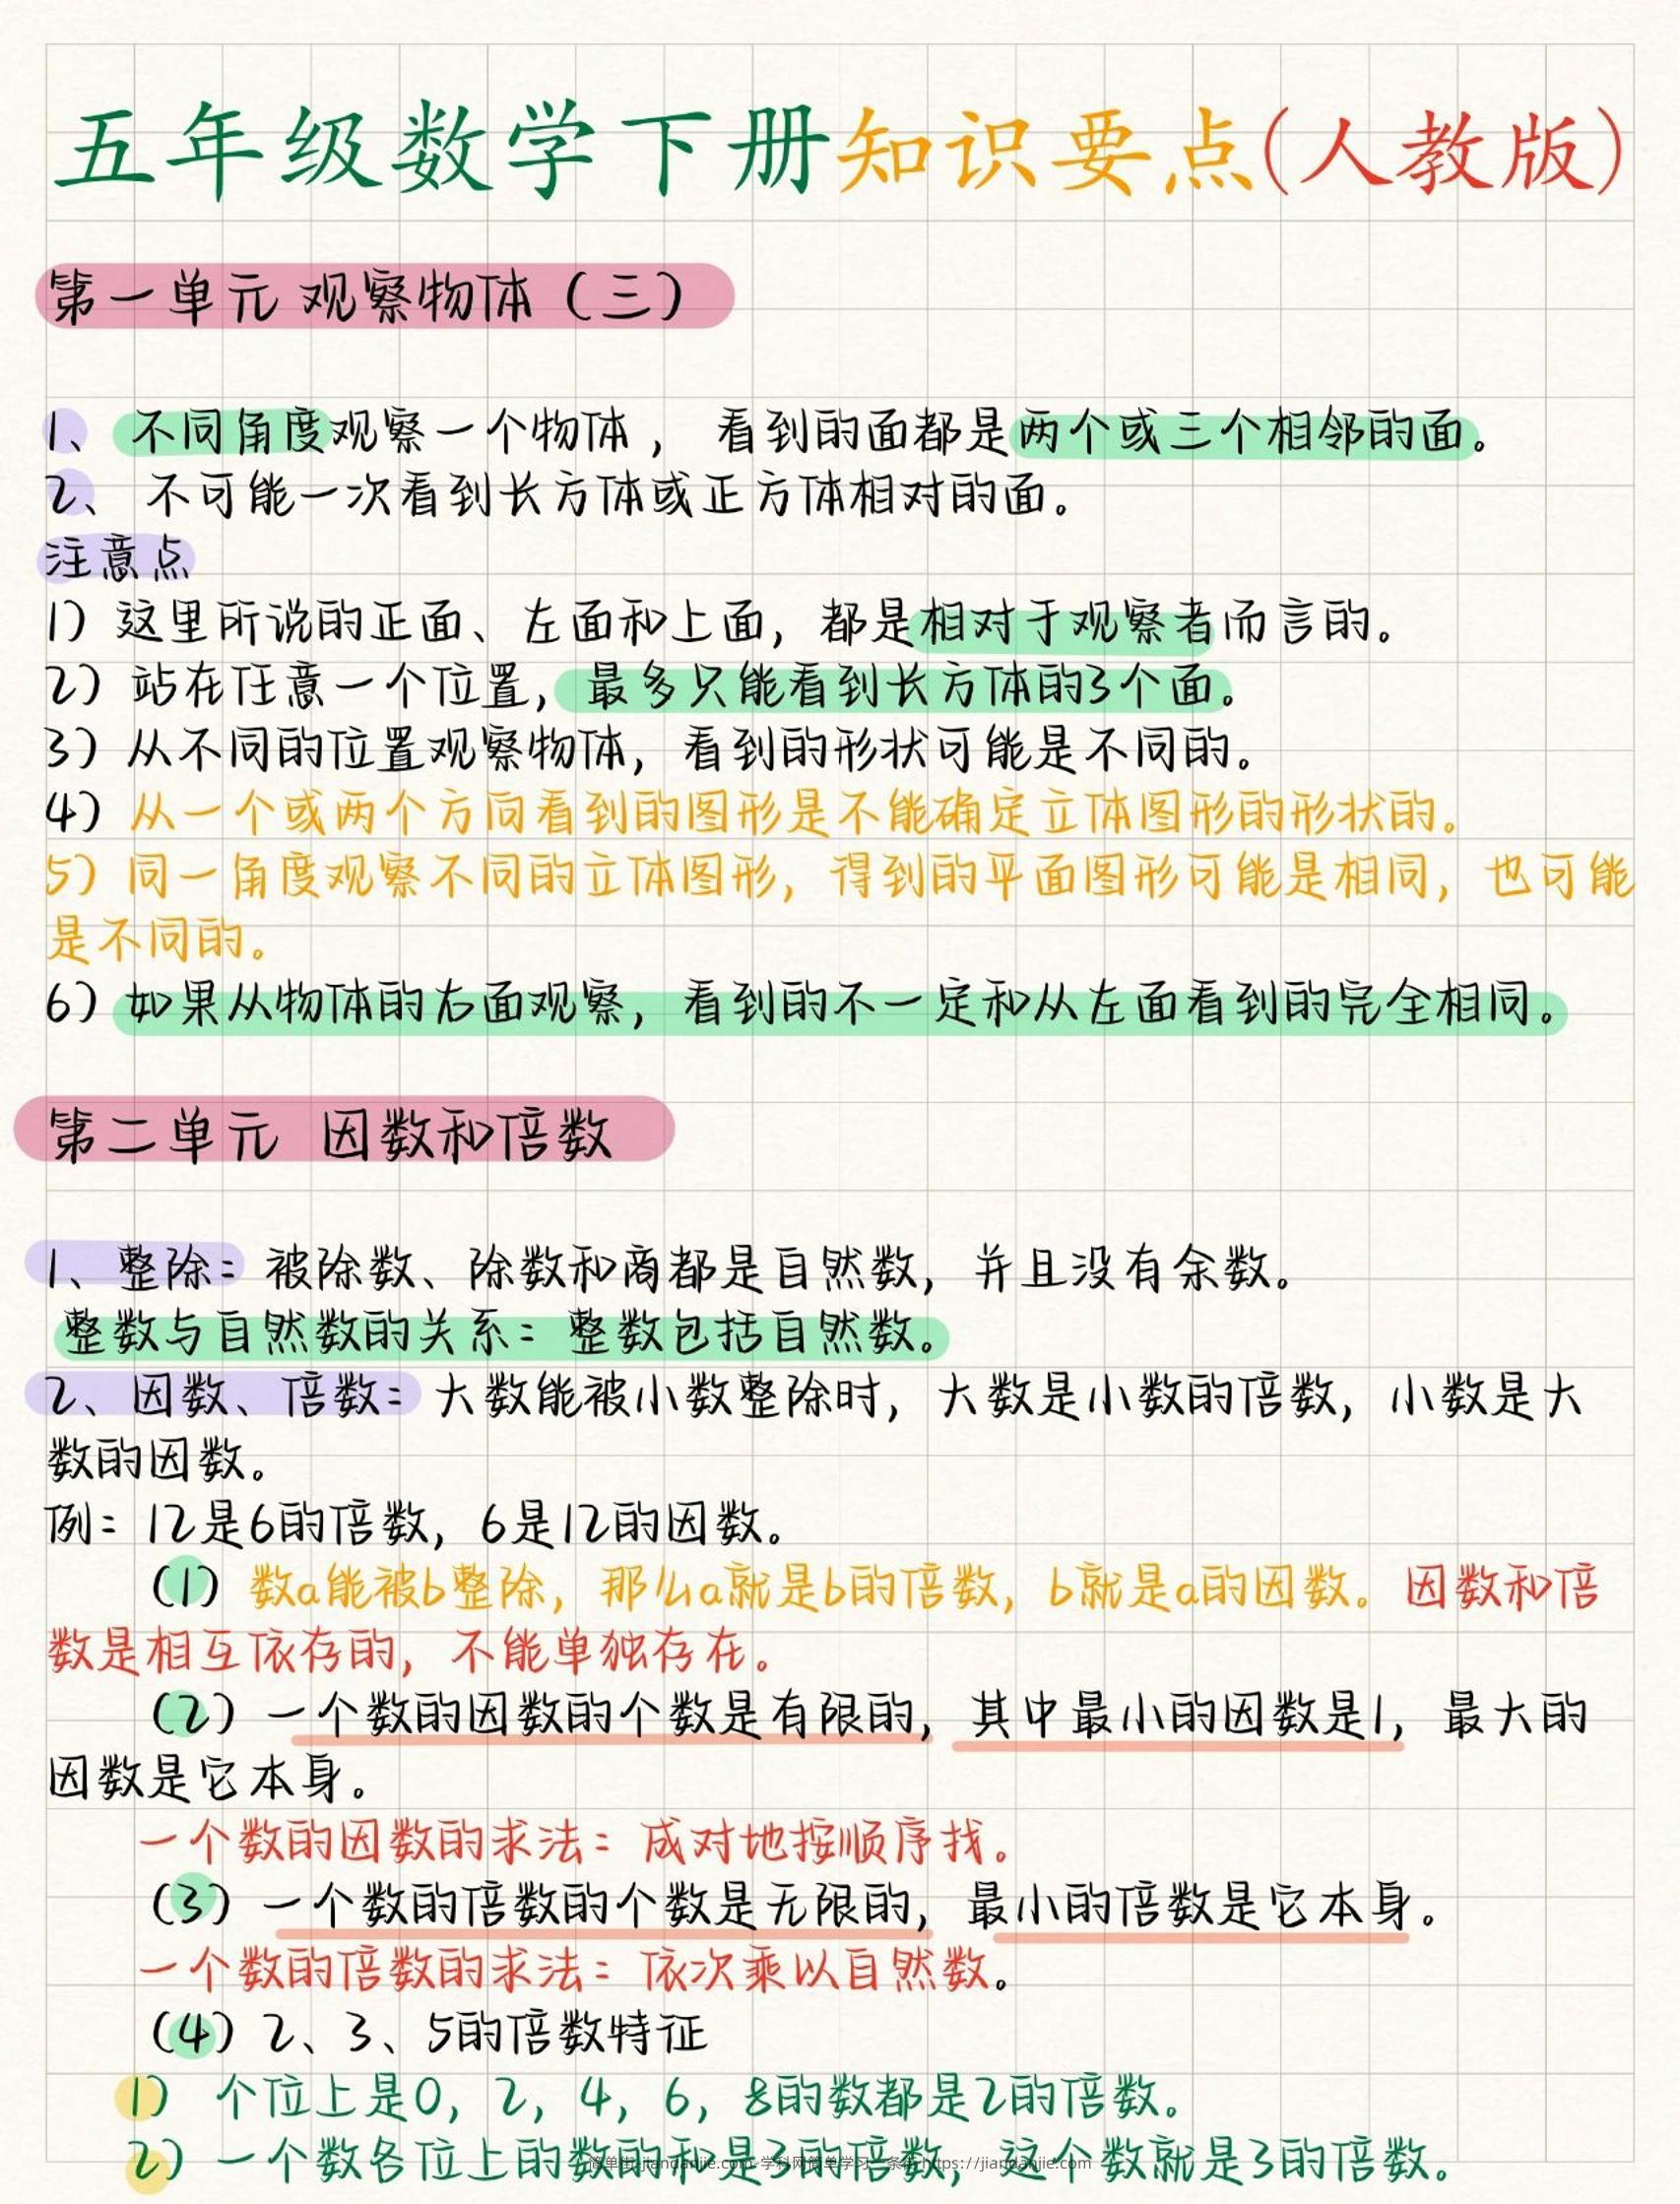 五年级数学下册知识要点(人教版)
第一单元 观察物体（三）
1、 不同角度观察一个物体， 看到的面都是两个或三个相邻的面。
2、 不可能一次看到长方体或正方体相对的面。
注意点
1）这里所说的正面、左面和上面，都是相对于观察者而言的。
2）站在任意一个位置， 最多只能看到长方体的3个面。
3）从不同的位置观察物体，看到的形状可能是不同的。
4）从一个或两个方向看到的图形是不能确定立体图形的形状的。
5）同一角度观察不同的立体图形，得到的平面图形可能是相同，也可能
是不同的。
6）如果从物体的右面观察，看到的不一定和从左面看到的完全相同。
第二单元 因数和倍数
1、整除：被除数、除数和商都是自然数，并且没有余数。
整数与自然数的关系：整数包括自然数。
2、因数、倍数：大数能被小数整除时，大数是小数的倍数，小数是大
数的因数。
例：12是6的倍数，6是12的因数。
（1）数a能被b整除，那么a就是b的倍数，b就是a的因数。因数和倍
数是相互依存的，不能单独存在。
（2）一个数的因数的个数是有限的，其中最小的因数是1，最大的
因数是它本身。
一个数的因数的求法：成对地按顺序找。
（3）一个数的倍数的个数是无限的，最小的倍数是它本身。
一个数的倍数的求法：依次乘以自然数。
（4）2、3、5的倍数特征
1） 个位上是0，2，4，6，8的数都是2的倍数。
2）一个数各位上的数的和是3的倍数，这个数就是3的倍数。
简单街-jiandanjie.com-学科网简单学习一条街 https://jiandanjie.com